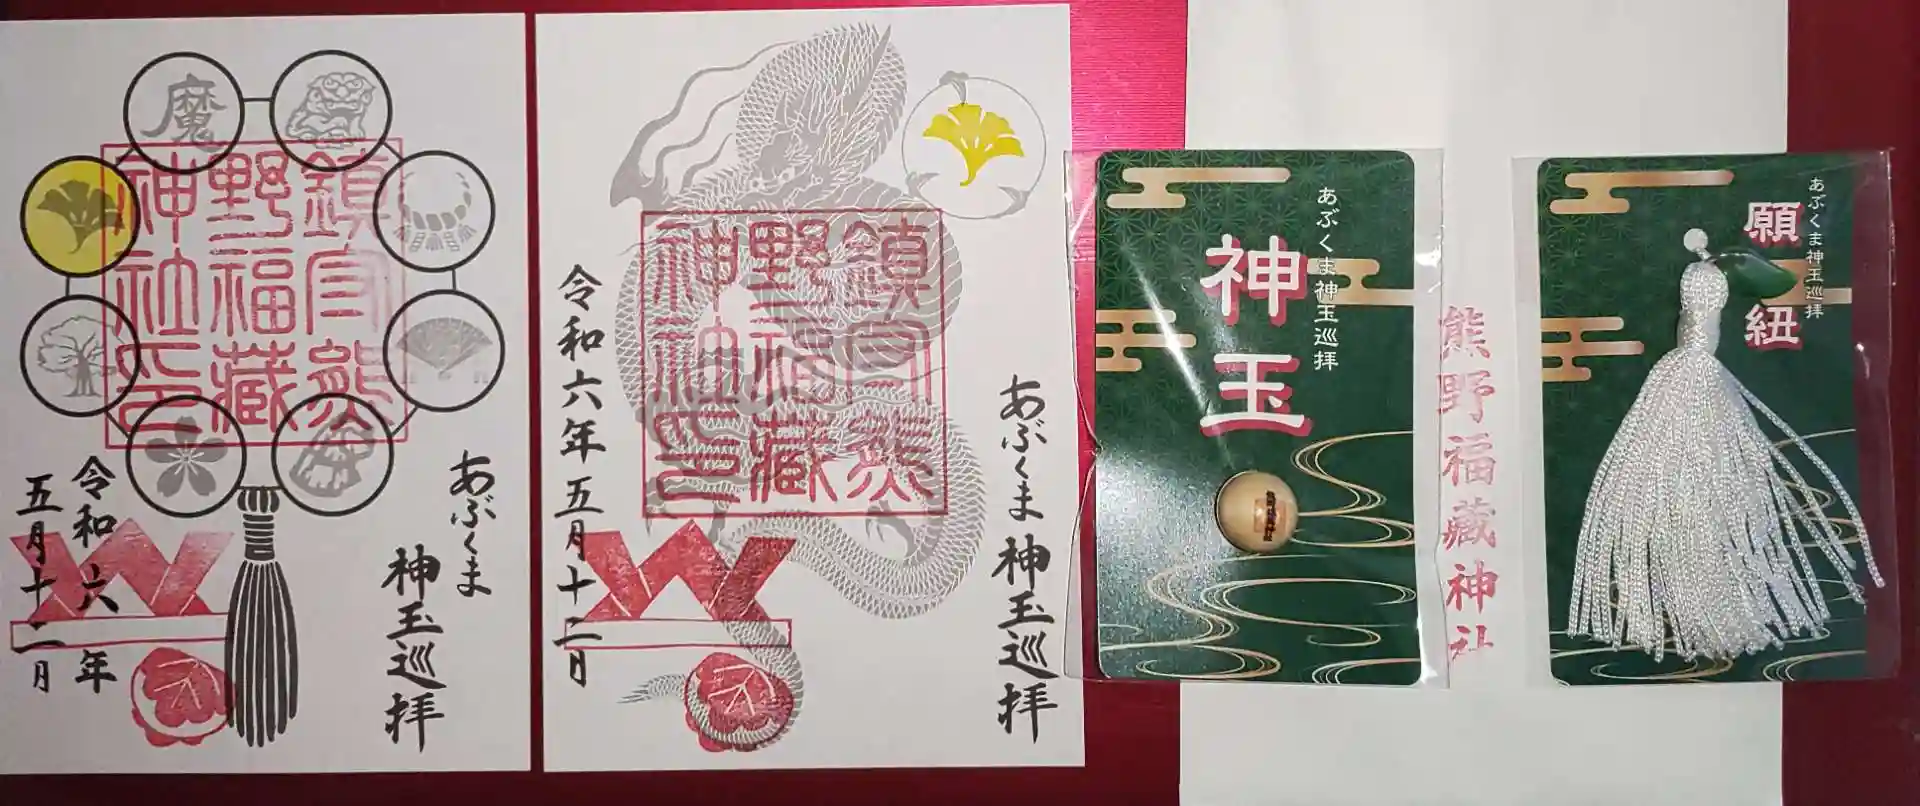 魔
鎮守熊
野福藏
神社印
あぶくま
神玉巡拝
令和六年
五月十二日
鎮守熊
野福藏
神社印
あぶくま
神玉巡拝
令和六年五月十二日
あぶくま神玉巡拝
神玉
熊野福藏神社
あぶくま神玉巡拝
願紐